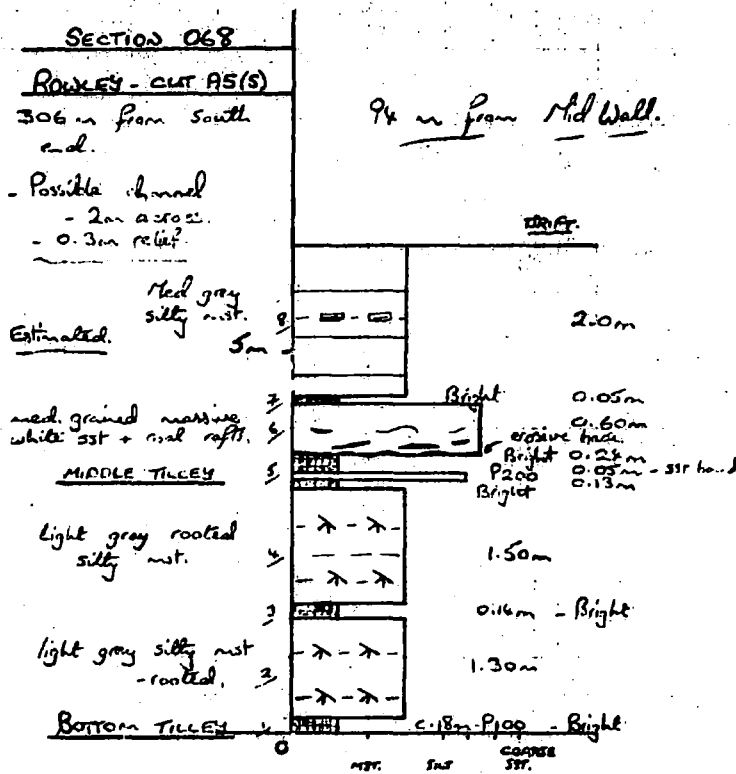 SECTION 068
ROWLEY - CUT A5(S)
306 m from south
end.
94 m from Mid Wall.
- Possible channel
- 2m across.
- 0.3m relief.
DRIFT.
Med grey
silty mst.
8
2.0m
Estimated.
5m
7
Bright 0.05m
med. grained massive
white sst + coal rafts.
6
0.60m
erosive base.
Bright 0.24m
MIDDLE TILLEY
5
P200 0.05m - sst band
Bright 0.13m
light grey rooted
silty mst.
4
1.50m
3
0.16m - Bright
light grey silty mst
- rooted.
2
1.30m
BOTTOM TILLEY
1
0.18m - P100 - Bright
0
MST. COARSE
SST.